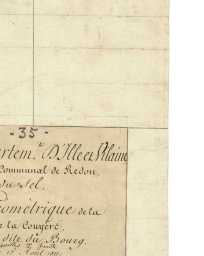 - 35 -
rtem.t D'Ille et Vilaine
Communal de Redon,
du Sel.
ométrique de la
la Couyère.
dite du Bourg.